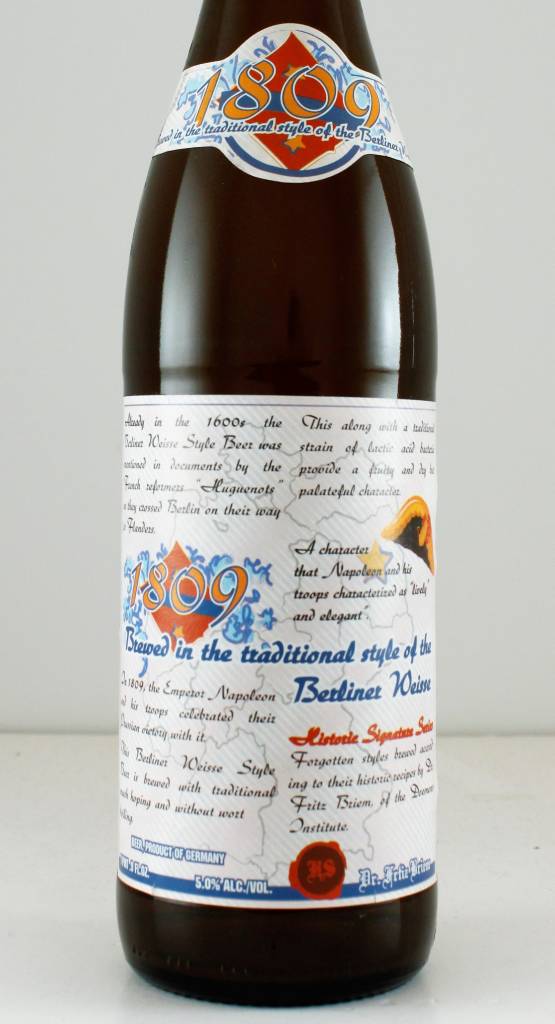 1809
in the traditional style of the Berliner
Already in the 1600s the
Berliner Weisse Style Beer was
mentioned in documents by the
French reformers "Huguenots"
as they crossed Berlin on their way
to Flanders.
This along with a traditional
strain of lactic acid bacteria
provide a fruity and dry but
palateful character.
A character
that Napoleon and his
troops characterized as "lively
and elegant".
1809
Brewed in the traditional style of the
Berliner Weisse
In 1809, the Emperor Napoleon
and his troops celebrated their
Prussian victory with it.
This Berliner Weisse Style
Beer is brewed with traditional
mash hoping and without wort
Historic Signature Series
Forgotten styles brewed accord-
ing to their historic recipes by Dr.
Fritz Briem, of the Doemens
Institute.
BEER, PRODUCT OF GERMANY
FL OZ.
5.0% ALC./VOL.
HS
Dr. Fritz Briem